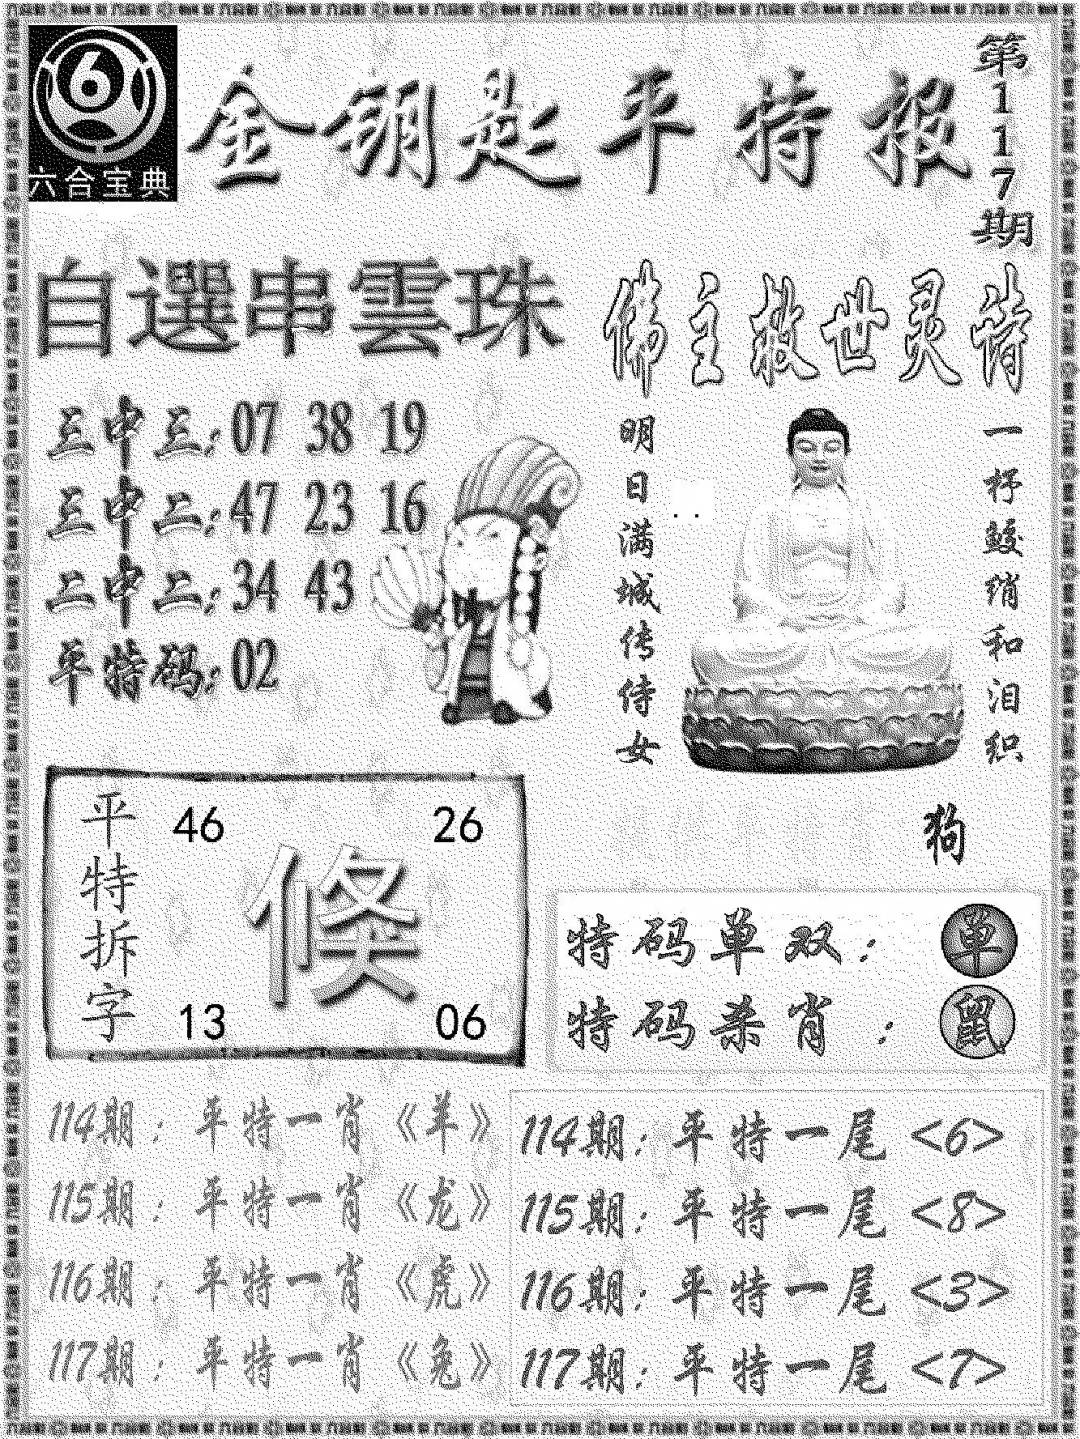 6
六合宝典
金钥匙平特报
第117期
自選串雲珠
三中三：07 38 19
三中二：47 23 16
二中二：34 43
平特码：02
佛主救世灵诗
一杼鲛绡和泪织
明日满城传侍女
狗
平特拆字
46 26
倏
13 06
特码单双：单
特码杀肖：鼠
114期：平特一肖《羊》
115期：平特一肖《龙》
116期：平特一肖《虎》
117期：平特一肖《兔》
114期：平特一尾<6>
115期：平特一尾<8>
116期：平特一尾<3>
117期：平特一尾<7>